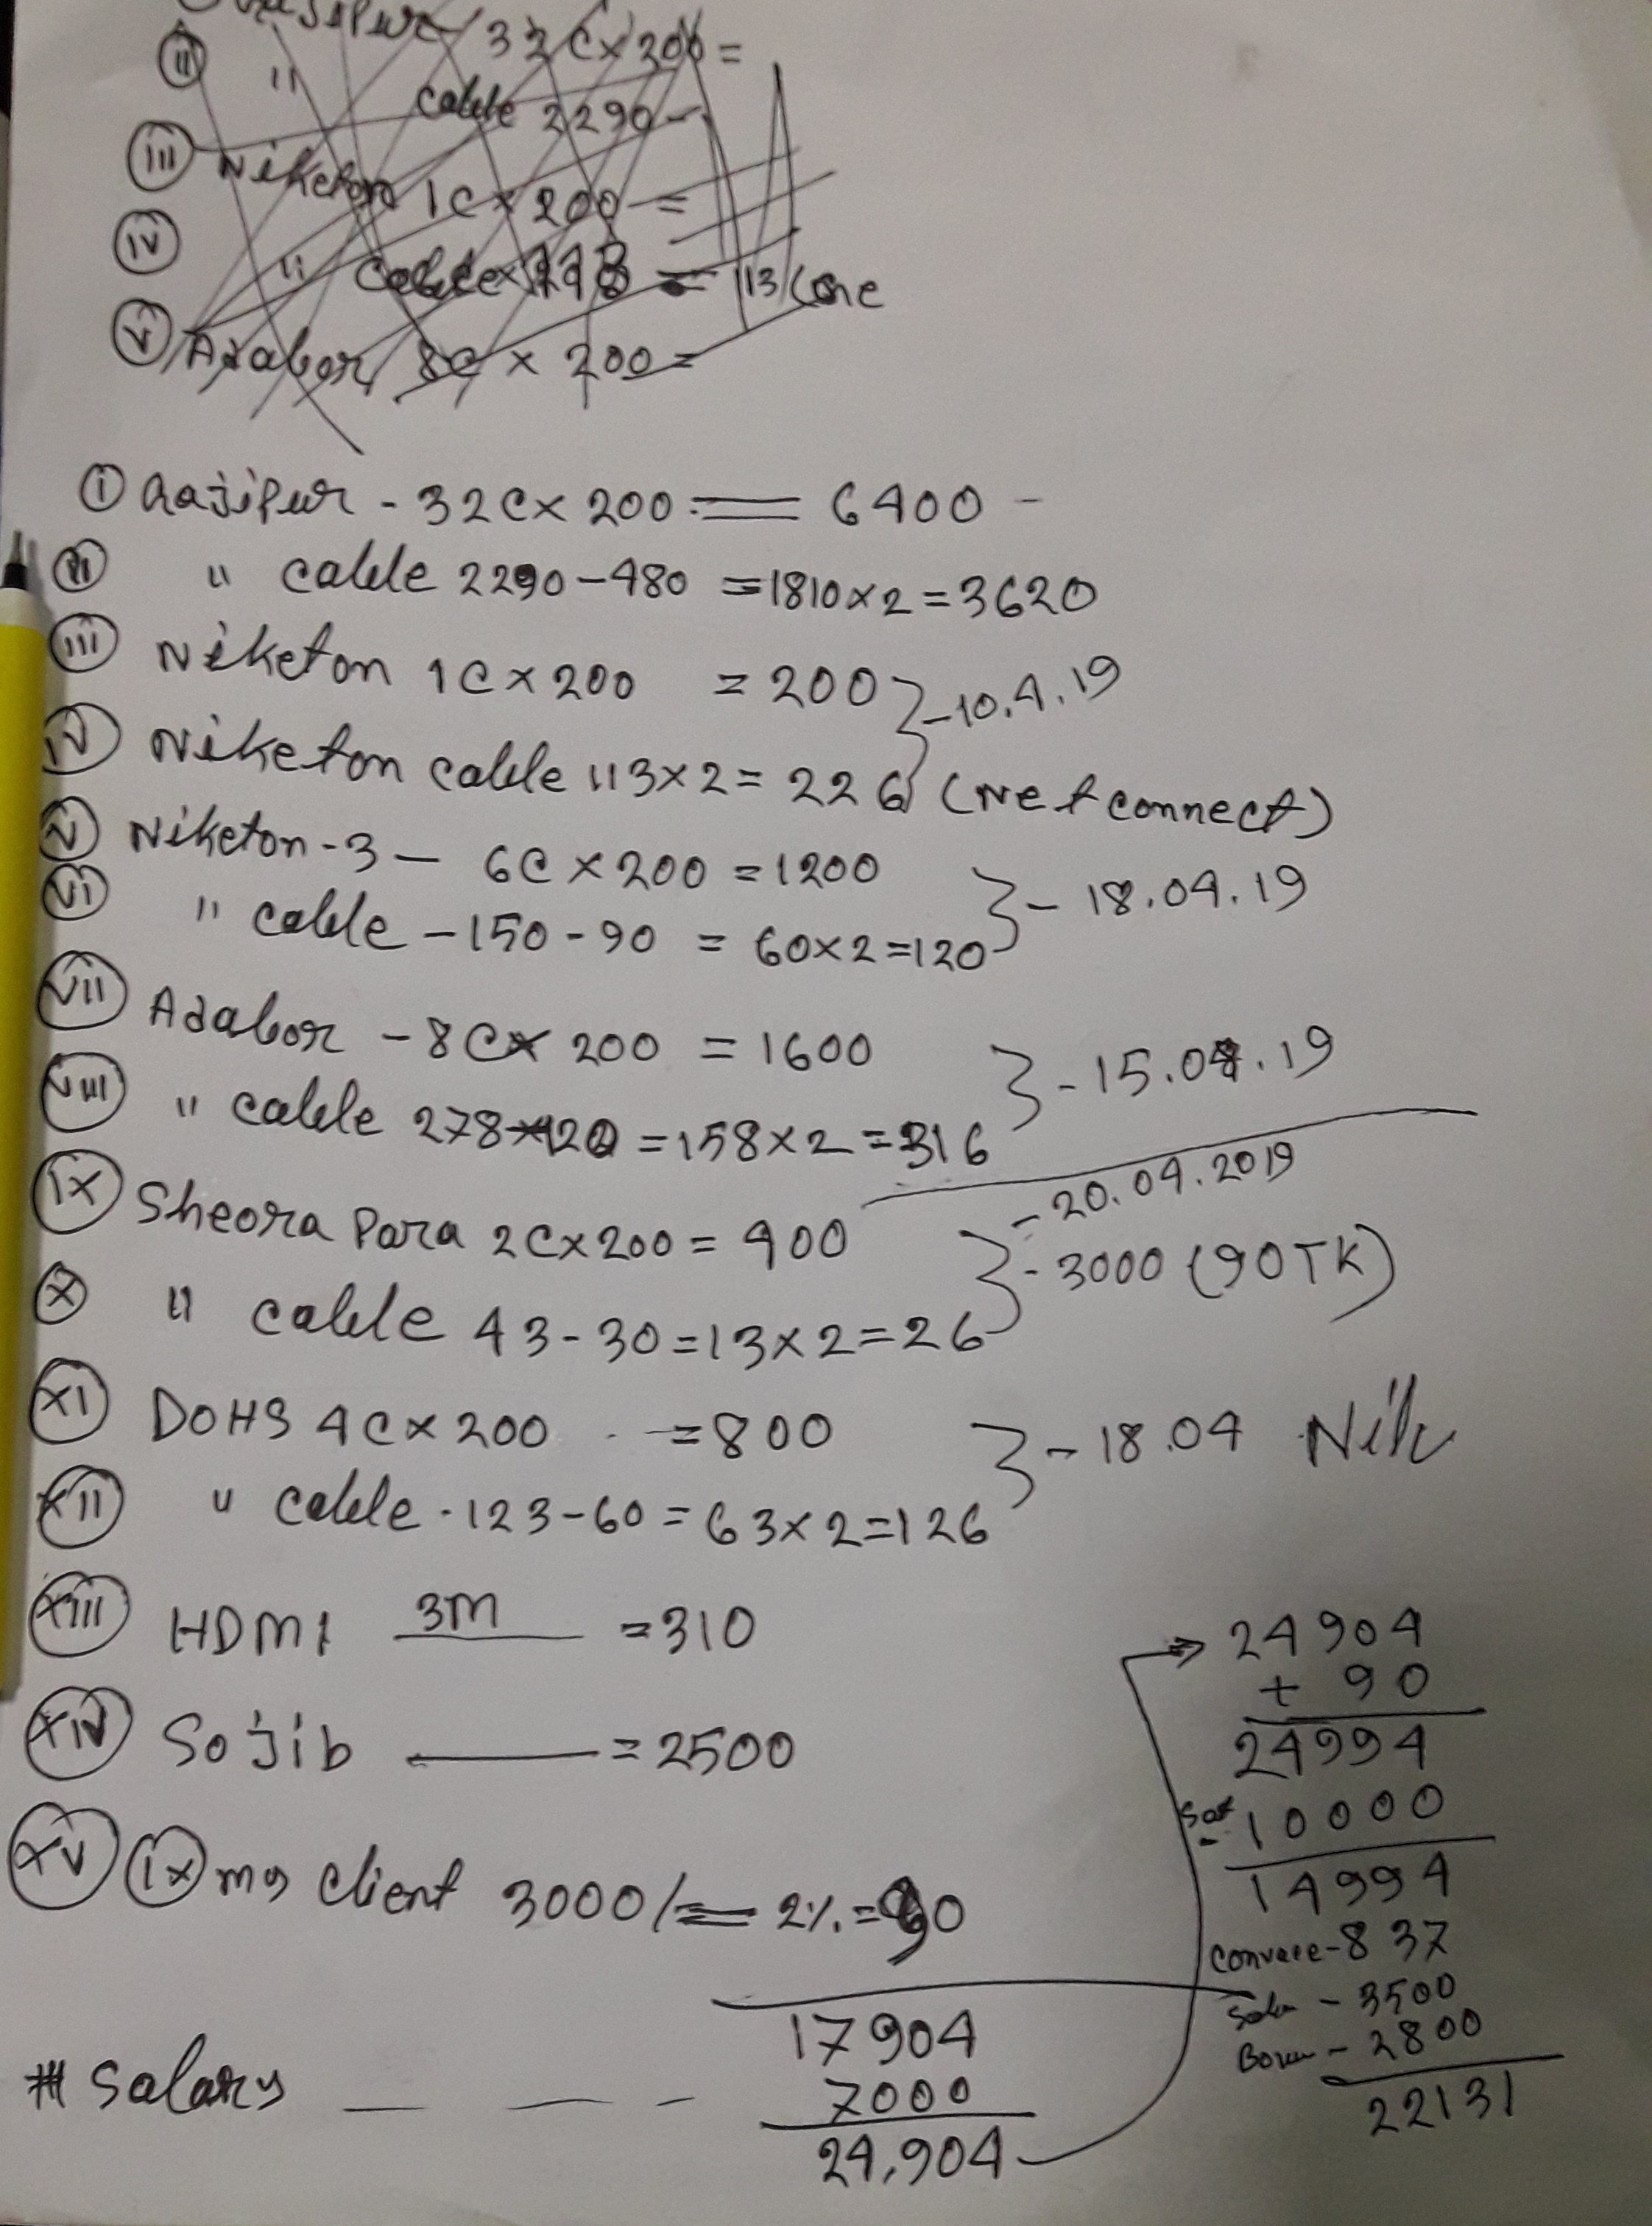 32 C x 200 =
(ii) " cable 2290 -
(iii) Niketon 1C x 200 =
(iv) " = 113 Cone
(v) Adabor 8C x 200 =
(i) Gajipur - 32C x 200 = 6400 -
(ii) " cable 2290 - 480 = 1810 x 2 = 3620
(iii) Niketon 1C x 200 = 200 } - 10.4.19
(iv) Niketon cable 113 x 2 = 226 (Net connect)
(v) Niketon - 3 - 6C x 200 = 1200
(vi) " cable - 150 - 90 = 60 x 2 = 120 } - 18.04.19
(vii) Adabor - 8C x 200 = 1600
(viii) " cable 278 - 120 = 158 x 2 = 316 } - 15.04.19
- 20.04.2019
(ix) Sheora Para 2C x 200 = 400
(x) " cable 43 - 30 = 13 x 2 = 26 } - 3000 (90 TK)
(xi) DOHS 4C x 200 = 800 } - 18.04 Nik
(xii) " cable - 123 - 60 = 63 x 2 = 126
(xiii) HDMI 3M = 310
(xiv) Sojib = 2500
(xv) (ix) my client 3000/= 2% = 90
17904
# Salary - - - 7000
24,904
24904
+ 90
24994
- 10000
14994
Convace - 837
- 3500
- 2800
22131